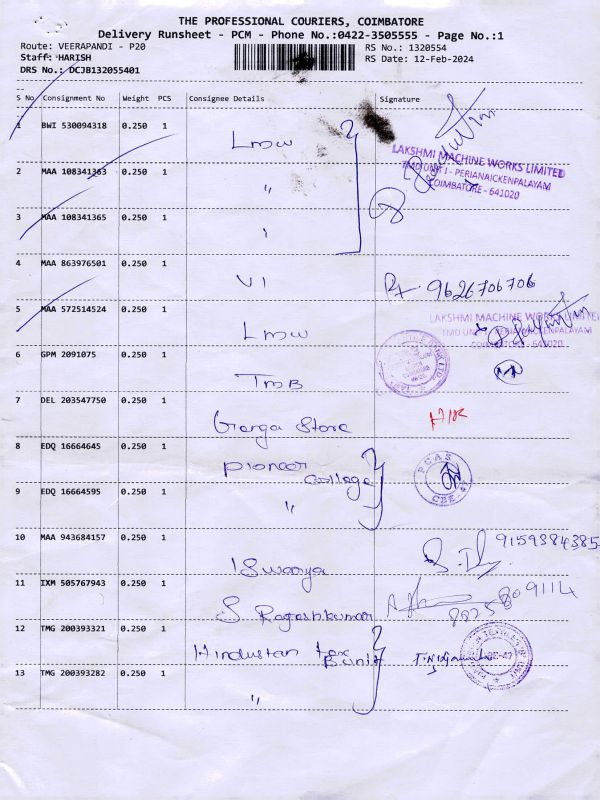 THE PROFESSIONAL COURIERS, COIMBATORE
Delivery Runsheet - PCM - Phone No.:0422-3505555 - Page No.:1
Route: VEERAPANDI - P20 RS No.: 1320554
Staff: HARISH RS Date: 12-Feb-2024
DRS No.: DCJB132055401
S No Consignment No Weight PCS Consignee Details Signature
1 BWI 530094318 0.250 1 Lmw
LAKSHMI MACHINE WORKS LIMITED
TMD UNIT I - PERIANAICKENPALAYAM
COIMBATORE - 641020
2 MAA 108341363 0.250 1 "
3 MAA 108341365 0.250 1
4 MAA 863976501 0.250 1 VI 9626706706
5 MAA 572514524 0.250 1 Lmw
LAKSHMI MACHINE WORKS LIMITED
TMD UNIT I - PERIANAICKENPALAYAM
COIMBATORE - 641020
6 GPM 2091075 0.250 1 TMB
7 DEL 203547750 0.250 1 Garga Store
8 EDQ 16664645 0.250 1 Pioneer College
PCAS
CBE-47
9 EDQ 16664595 0.250 1 "
10 MAA 943684157 0.250 1 ISwarya 9159384385
11 IXM 505767943 0.250 1 S. Rageshkumar
12 TMG 200393321 0.250 1 Hindustan tex
B unit
13 TMG 200393282 0.250 1 "